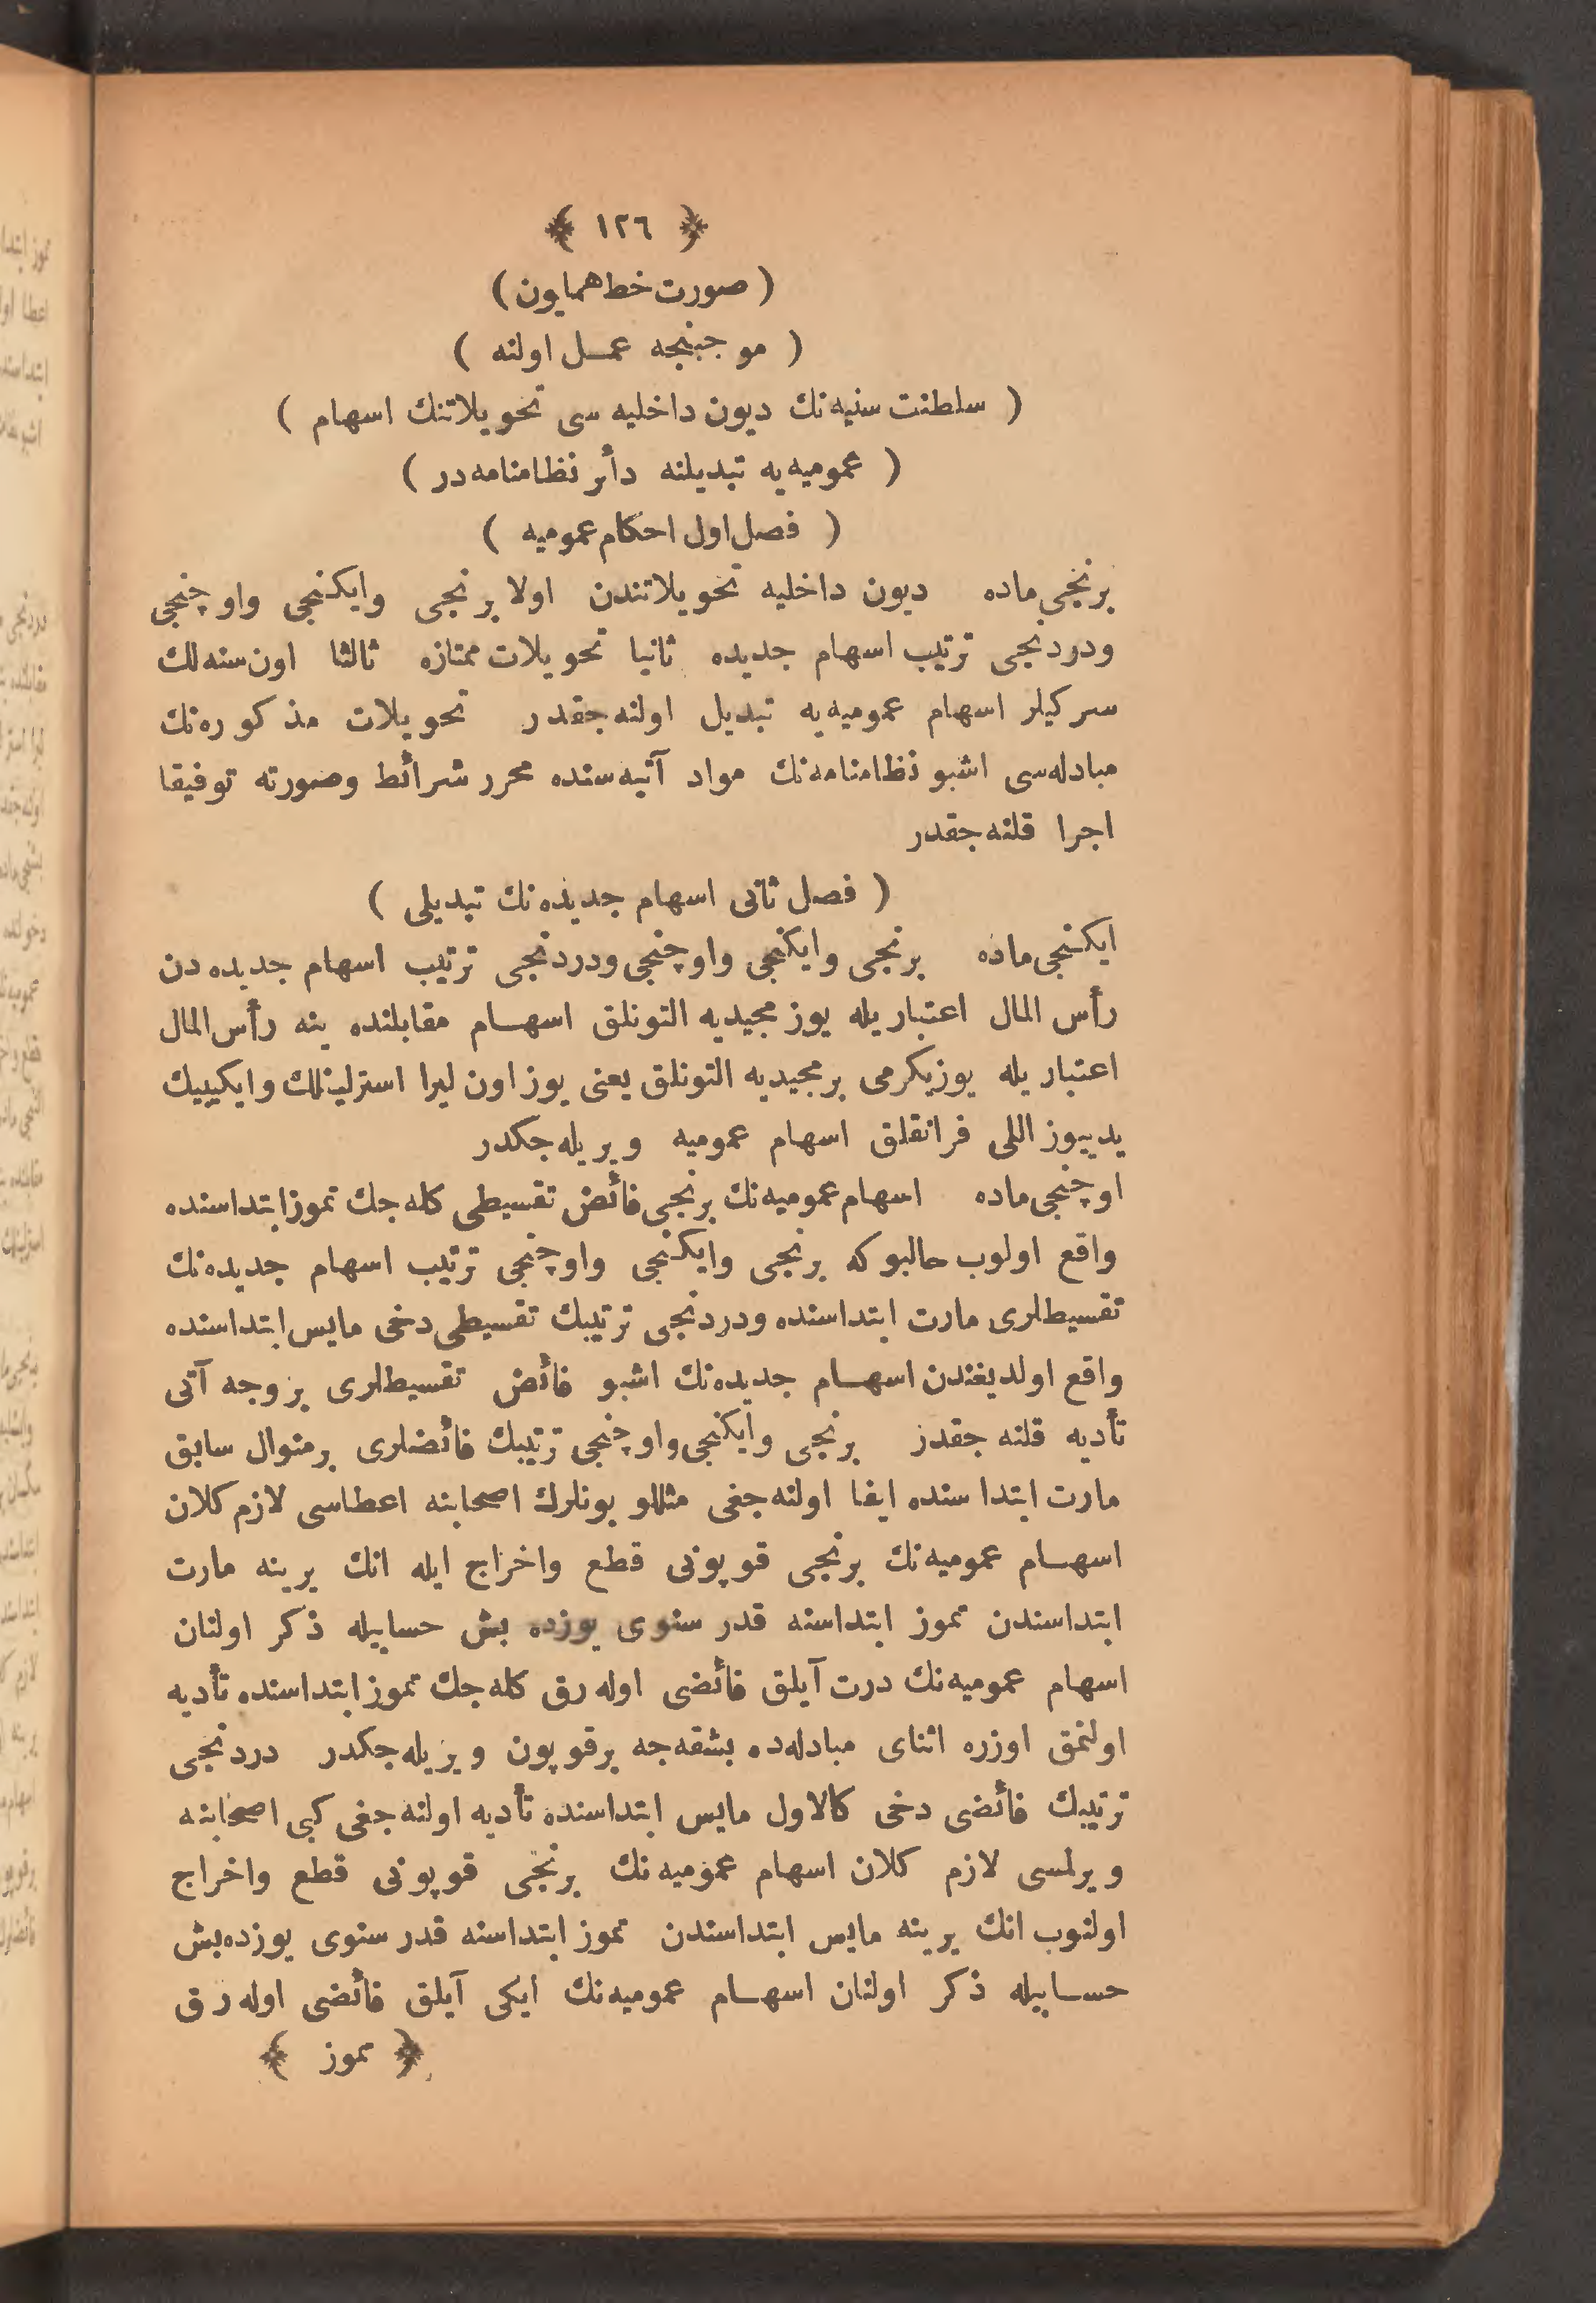 ﴿ ١٢٦ ﴾
( صورت خط همايون )
( موجبنجه عمل اولنه )
( سلطنت سنيه نك ديون داخليه سى تحويلاتنك اسهام )
( عموميه يه تبديلنه دأئر نظامنامه در )
( فصل اول احكام عموميه )
برنجى ماده ديون داخليه تحويلاتندن اولا برنجى وايكنجى واوچنجى
ودردنجى ترتيب اسهام جديده ثانيا تحويلات ممتازه ثالثا اون سنه لك
سركيلر اسهام عموميه يه تبديل اولنه جقدر تحويلات مذكوره نك
مبادله سى اشبو نظامنامه نك مواد آتيه سنده محرر شرائط وصورته توفيقا
اجرا قلنه جقدر
( فصل ثانى اسهام جديده نك تبديلى )
ايكنجى ماده برنجى وايكنجى واوچنجى ودردنجى ترتيب اسهام جديده دن
رأس المال اعتباريله يوز مجيديه التونلق اسهام مقابلنده ينه رأس المال
اعتباريله يوزيكرمى برمجيديه التونلق يعنى يوز اون ليرا استرلينلك وايكيبيك
يديوز اللى فرانقلق اسهام عموميه ويريله جكدر
اوچنجى ماده اسهام عموميه نك برنجى فائض تقسيطى كله جك تموز ابتداسنده
واقع اولوب حالبوكه برنجى وايكنجى واوچنجى ترتيب اسهام جديده نك
تقسيطلرى مارت ابتداسنده ودردنجى ترتيبك تقسيطى دخى مايس ابتداسنده
واقع اولديغندن اسهام جديده نك اشبو فائض تقسيطلرى بروجه آتى
تأديه قلنه جقدر برنجى وايكنجى واوچنجى ترتيبك فائضلرى برمنوال سابق
مارت ابتدا سنده ايفا اولنه جغى مثللو بونلرك اصحابنه اعطاسى لازم كلان
اسهام عموميه نك برنجى قوپونى قطع واخراج ايله انك يرينه مارت
ابتداسندن تموز ابتداسنه قدر سنوى يوزده بش حسابيله ذكر اولنان
اسهام عموميه نك درت آيلق فائضى اوله رق كله جك تموز ابتداسنده تأديه
اولنمق اوزره اثناى مبادله ده بشقه جه برقوپون ويريله جكدر دردنجى
ترتيبك فائضى دخى كالاول مايس ابتداسنده تأديه اولنه جغى كبى اصحابنه
ويرلمسى لازم كلان اسهام عموميه نك برنجى قوپونى قطع واخراج
اولنوب انك يرينه مايس ابتداسندن تموز ابتداسنه قدر سنوى يوزده بش
حسابيله ذكر اولنان اسهام عموميه نك ايكى آيلق فائضى اوله رق
﴿ تموز ﴾